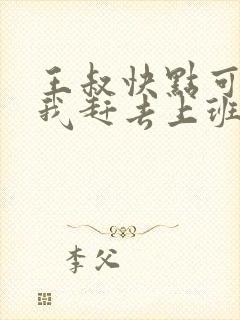 王叔快點可
我赶去上班
李父